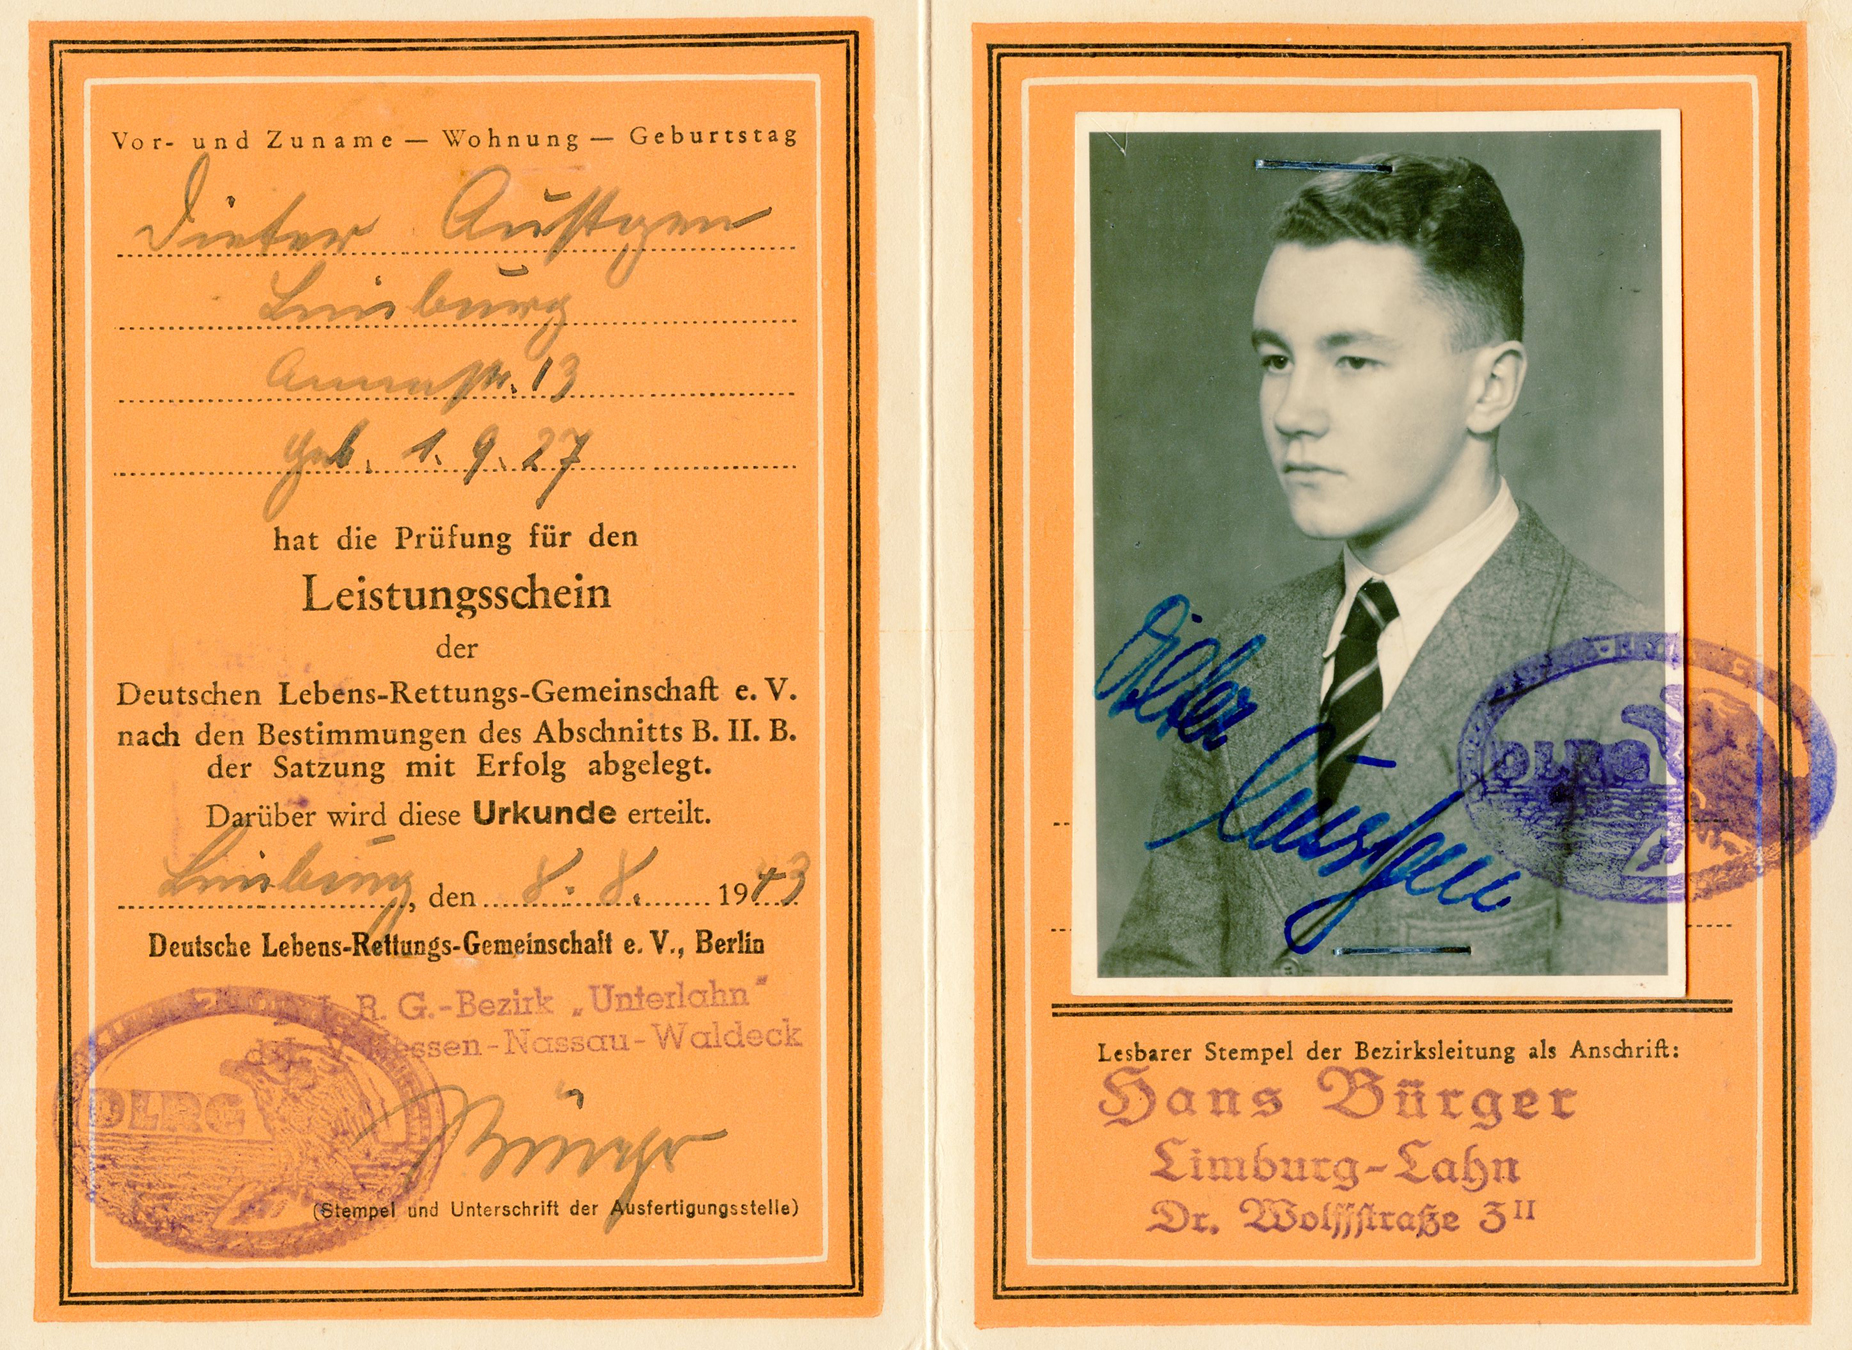 Vor- und Zuname — Wohnung — Geburtstag
Dieter Austgen
Limburg
Annastr. 13
geb. 1. 9. 27
hat die Prüfung für den
Leistungsschein
der
Deutschen Lebens-Rettungs-Gemeinschaft e. V.
nach den Bestimmungen des Abschnitts B. II. B.
der Satzung mit Erfolg abgelegt.
Darüber wird diese Urkunde erteilt.
Limburg, den 8. 8. 1943
Deutsche Lebens-Rettungs-Gemeinschaft e. V., Berlin
L. R. G.-Bezirk „Unterlahn"
d. L. V. Hessen-Nassau-Waldeck
DLRG
Bürger
(Stempel und Unterschrift der Ausfertigungsstelle)
Dieter
Austgen
DLRG
Lesbarer Stempel der Bezirksleitung als Anschrift:
Hans Bürger
Limburg-Lahn
Dr. Wolffstraße 3II